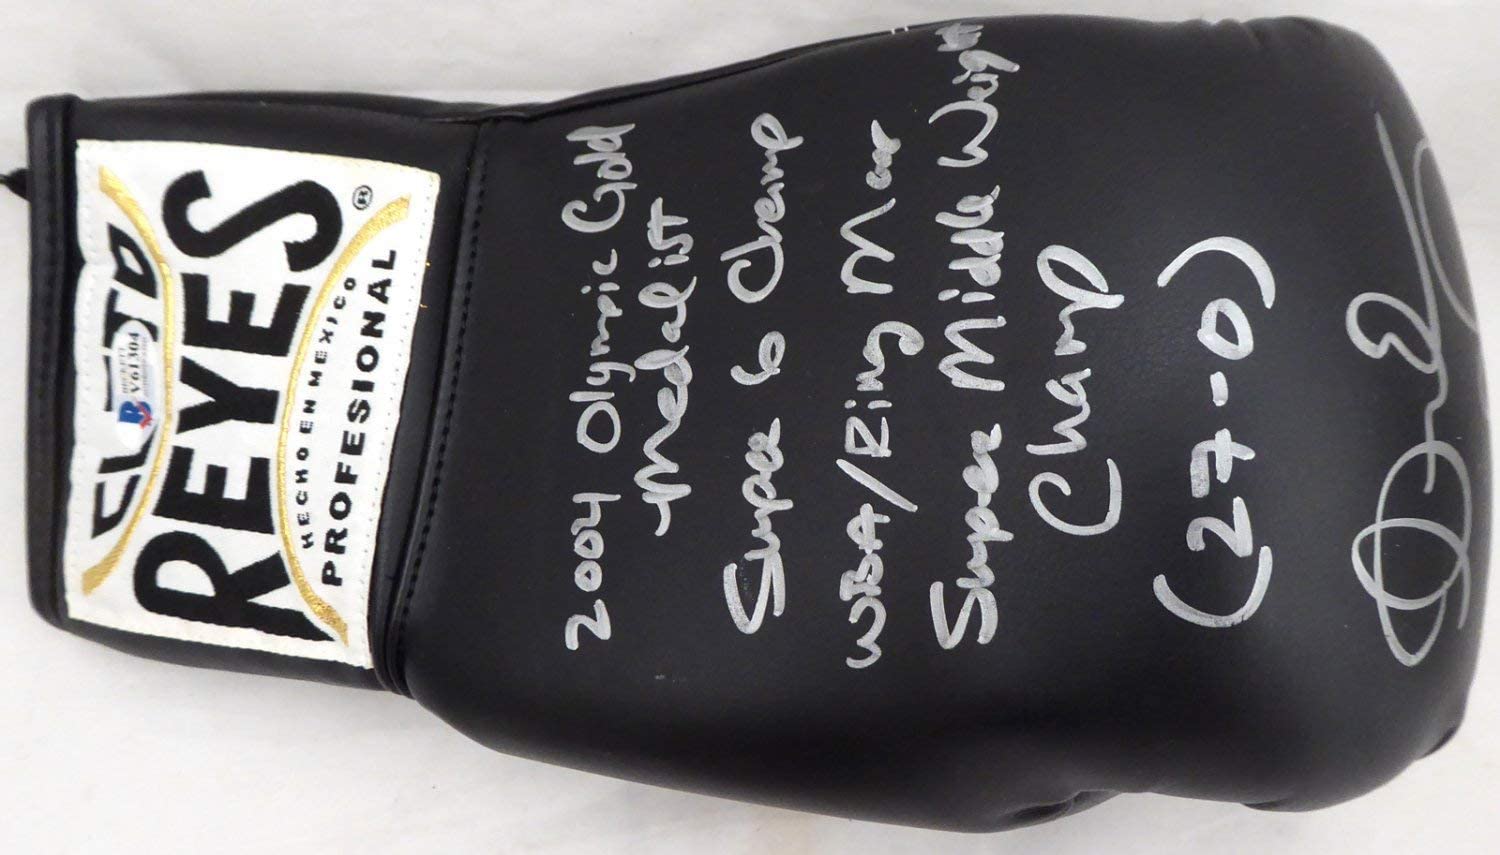 CLETO
REYES®
HECHO EN MEXICO
PROFESIONAL
BECKETT
V61304
2004 Olympic Gold
Medalist
Super 6 Champ
WBA/Ring Mag
Super Middle Weight
Champ
(27-0)